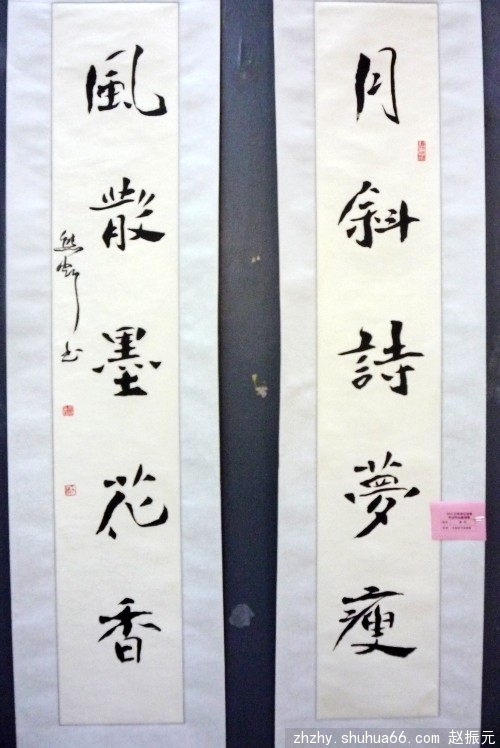 月斜詩夢瘦
風散墨花香
zhzhy.shuhua66.com 赵振元